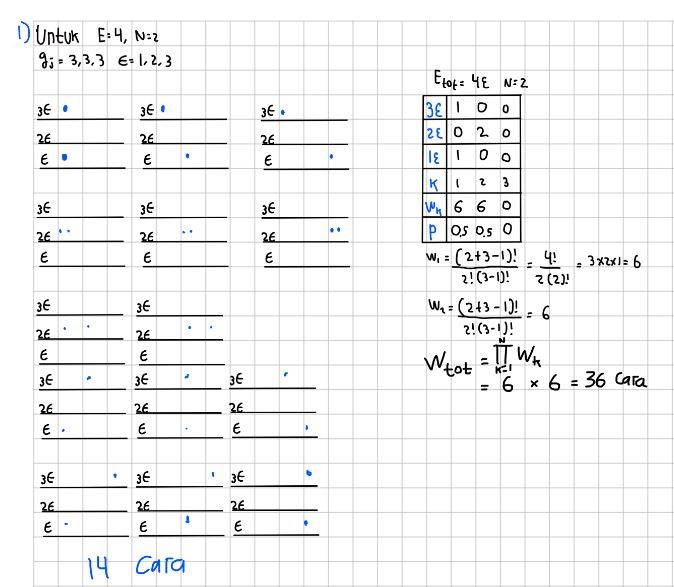 1) Untuk E=4, N=2
gj = 3,3,3 ϵ=1,2,3
3ϵ 3ϵ 3ϵ
2ϵ 2ϵ 2ϵ
ϵ ϵ ϵ
3ϵ 3ϵ 3ϵ
2ϵ 2ϵ 2ϵ
ϵ ϵ ϵ
3ϵ 3ϵ
2ϵ 2ϵ
ϵ ϵ
3ϵ 3ϵ 3ϵ
2ϵ 2ϵ 2ϵ
ϵ ϵ ϵ
3ϵ 3ϵ 3ϵ
2ϵ 2ϵ 2ϵ
ϵ ϵ ϵ
14 Cara
Etot = 4ε N=2
3ε 1 0 0
2ε 0 2 0
1ε 1 0 0
K 1 2 3
Wk 6 6 0
P 0,5 0,5 0
W1 = (2+3-1)! / 2!(3-1)! = 4! / 2(2)! = 3×2×1 = 6
W2 = (2+3-1)! / 2!(3-1)! = 6
Wtot = ∏ N K=1 Wk
= 6 × 6 = 36 Cara